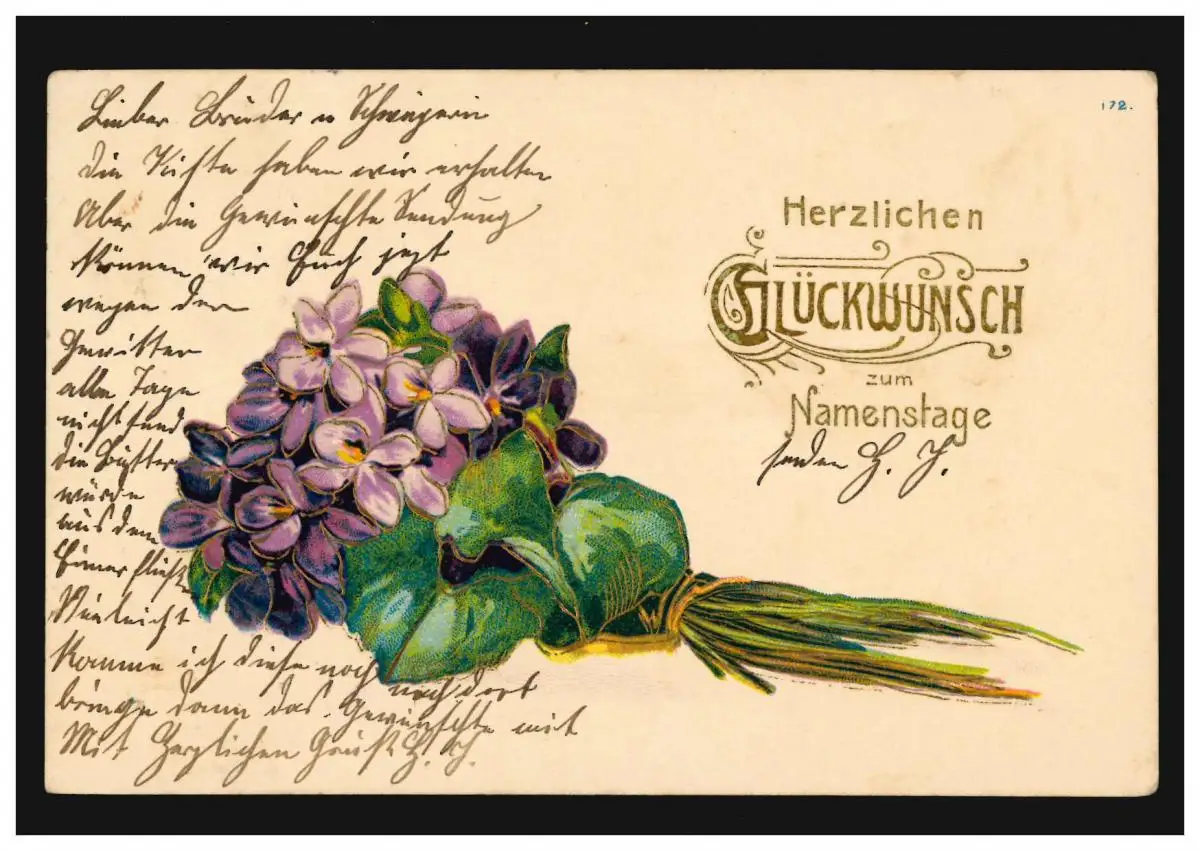 Lieber Bruder u Schwägerin
die Kiste haben wir erhalten
Aber die Gewünschte Sendung
können wir Euch jezt
wegen den
Gewitter
alle Tage
nicht send
die
würde
aus dem
Eimer fließ
Vieleicht
Komme ich diese noch nach dort
bringe dann das Gewünschte mit
Mit Herzlichen Gruß H. J.
172.
Herzlichen
GLÜCKWUNSCH
zum
Namenstage
senden H. J.